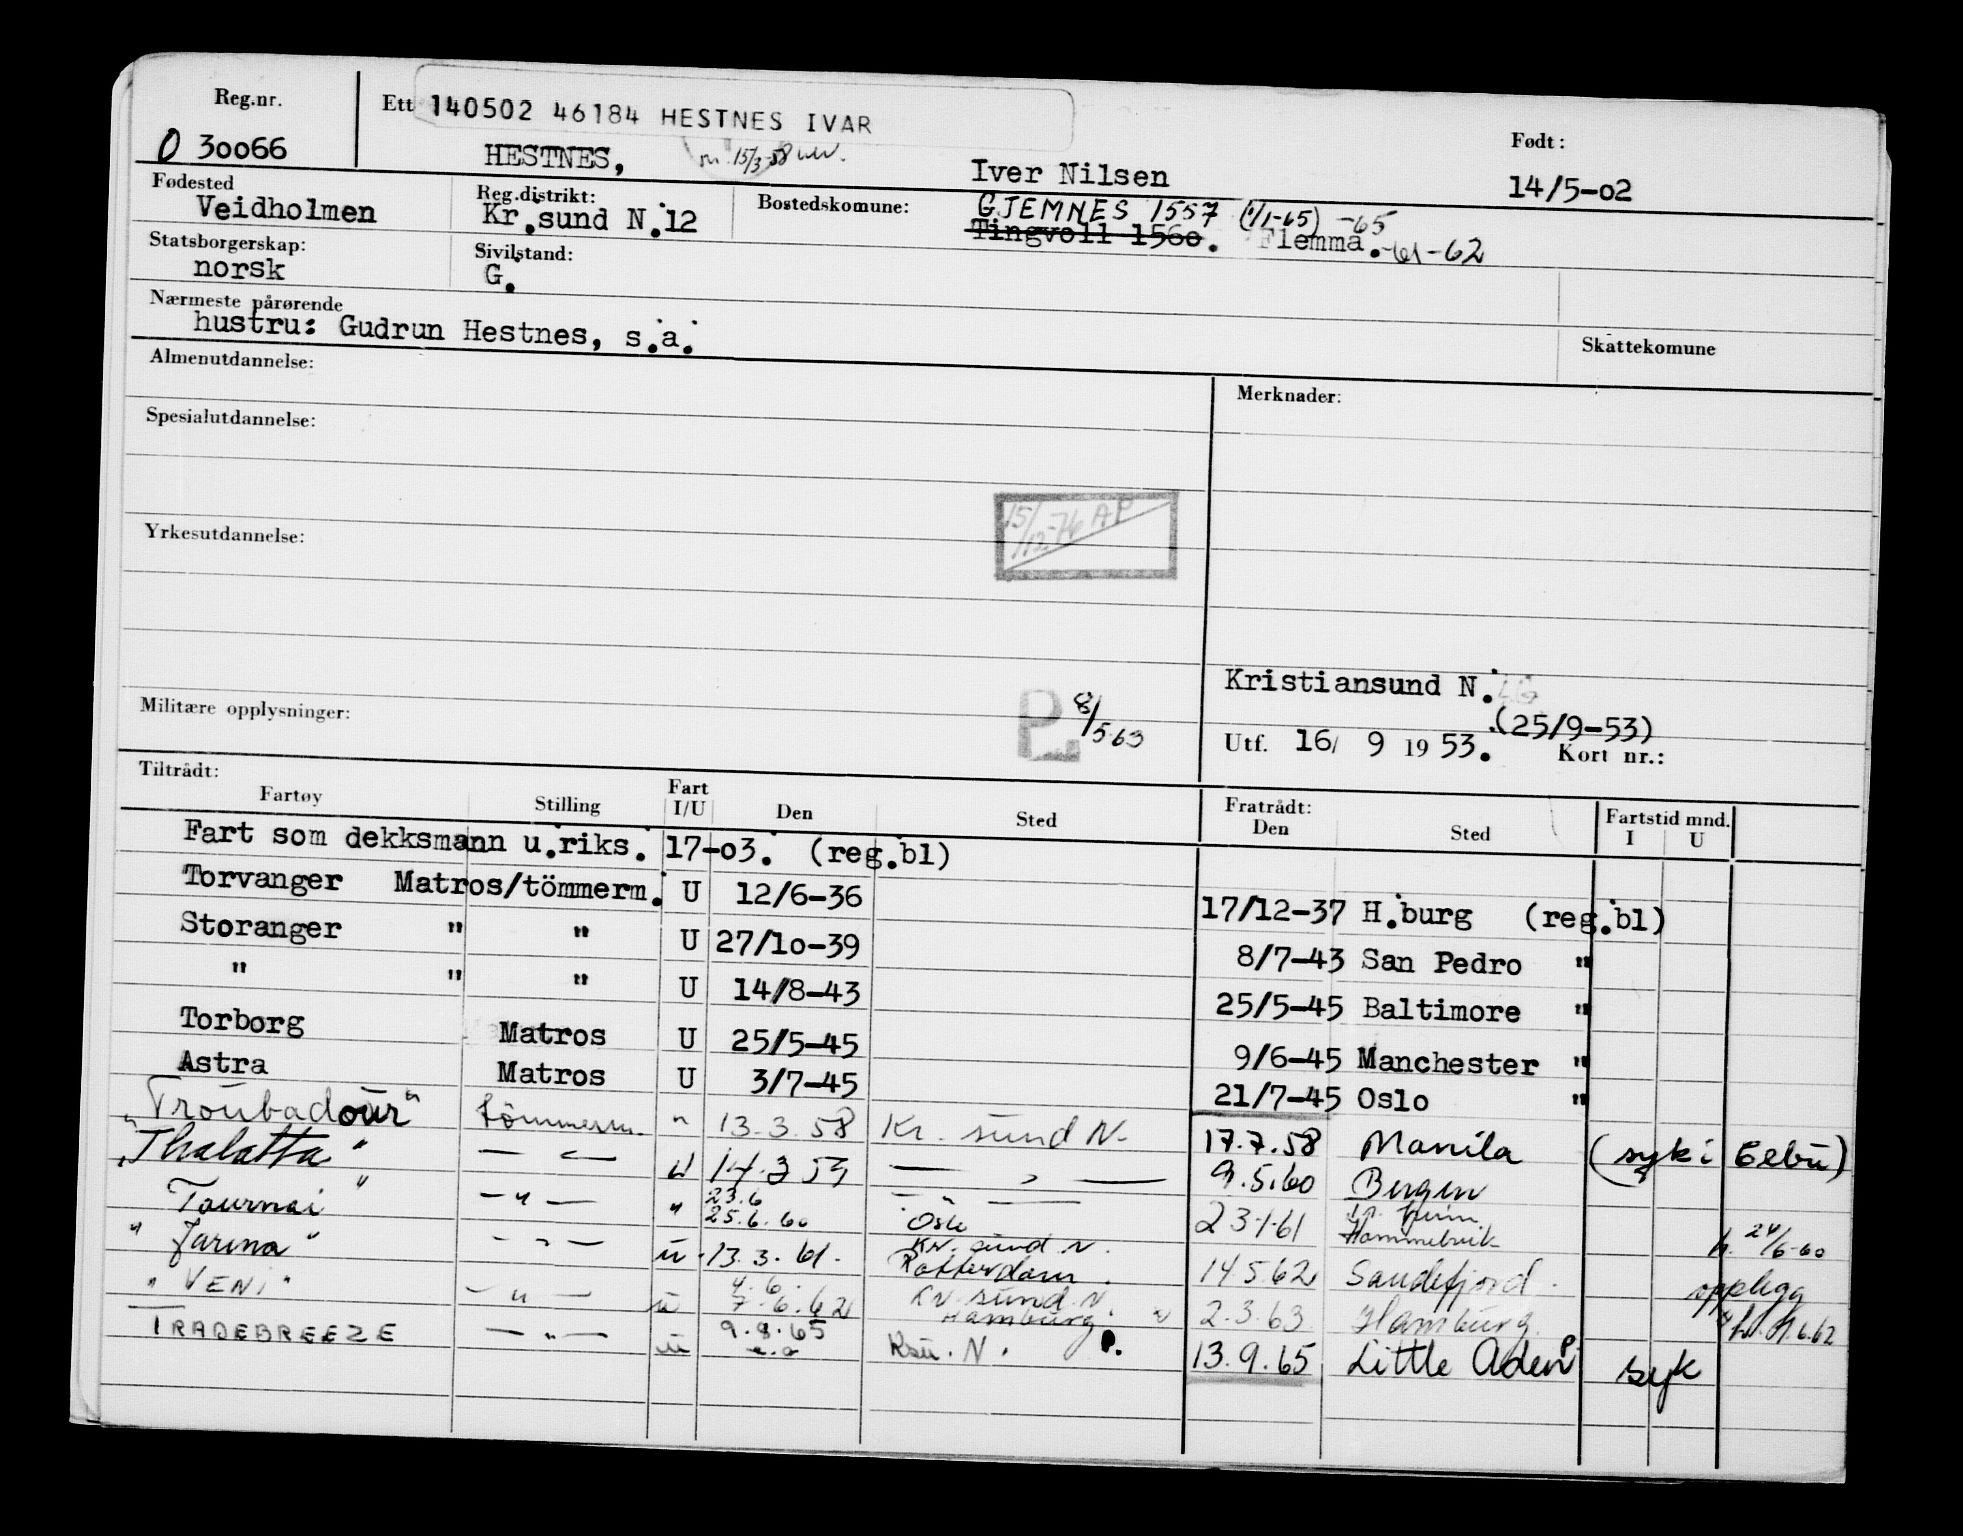 Reg.nr. Ett 140502 46184 HESTNES IVAR Født:
O 30066 HESTNES, 15/3-58 Iver Nilsen 14/5-02
Fødested Reg.distrikt: Bostedskomune: GJEMNES 1557 (1/1-65) -65
Veidholmen Kr.sund N.12 Tingvoll 1560. Flemma. -61-62
Statsborgerskap: Sivilstand:
norsk G.
Nærmeste pårørende
hustru: Gudrun Hestnes, s.a. Skattekomune
Almenutdannelse: Merknader:
Spesialutdannelse:
15/12-76 AP
Yrkesutdannelse:
Kristiansund N.
Militære opplysninger: P 8/5.63 (25/9-53)
Utf. 16/ 9 19 53. Kort nr.:
Tiltrådt: Fratrådt: Fartstid mnd.
Fartøy Stilling Fart I/U Den Sted Den Sted I U
Fart som dekksmann u.riks. 17-03. (reg.bl)
Torvanger Matros/tömmerm. U 12/6-36 17/12-37 H.burg (reg.bl)
Storanger " " U 27/10-39 8/7-43 San Pedro "
" " " U 14/8-43 25/5-45 Baltimore "
Torborg Matros U 25/5-45 9/6-45 Manchester "
Astra Matros U 3/7-45 21/7-45 Oslo "
"Troubadour" tömmerm. " 13.3.58 Kr. sund N. 17.7.58 Manila (syk i Cebu)
"Thalatta" — " — U 14.3 59 — " — 9.5.60 Bergen
Tournai " — " — " 23.6 25.6.60 Oslo 23-1-61 Hammelvik 24/6-60
" Jarena" — " — u 13.3.61. Kr. sund N. Rotterdam. 14.5.62 Sandefjord. opplegg
" VENI" — " — u 4.6. 7.6.62 Kr. sund N. Hamburg. 2.3.63 Hamburg.
TRADEBREEZE — " — u 9.8.65 Ksu. N. P. 13.9.65 Little Aden P syk